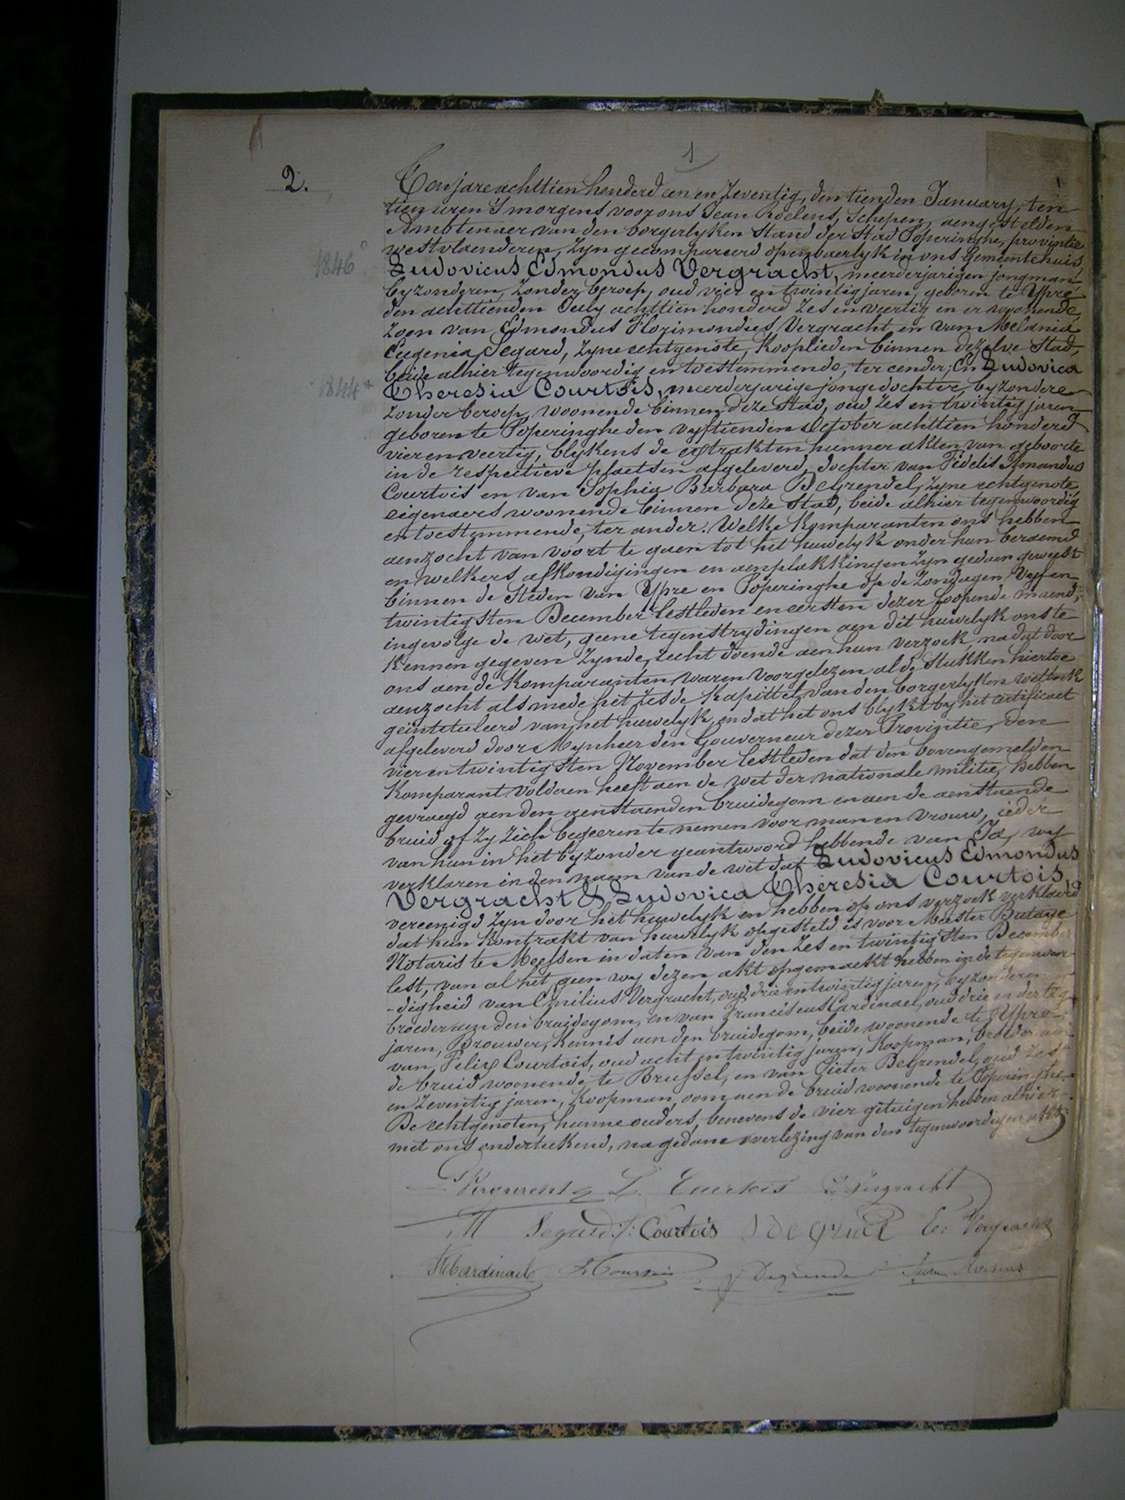 1
2.
Ten jare achttien honderd een en zeventig, den tienden January, ten
tien uren 's morgens voor ons Jean Roelens, Schepen, aengestelden
Ambtenaer van den borgerlyken Stand der Stad Poperinghe, provintie
westvlaenderen, zyn gecompareerd openbaerlyk in ons Gemeentehuis
1846
Ludovicus Edmondus Vergracht, meerderjarigen jongman
byzonderen, zonder beroep, oud vier en twintig jaren, geboren te Ypre
den achttienden July achttien honderd zes en veertig en er woonende,
zoon van Edmondus Florimondus Vergracht en van Melania
Eugenia Segard, zyne echtgenote, Kooplieden binnen dezelve Stad,
beide alhier tegenwoordig en toestemmende, ter eender; En Ludovica
1844
Theresia Courtois, meerderjarige jongedochter, byzondere
zonder beroep, woonende binnen deze Stad, oud zes en twintig jaren
geboren te Poperinghe den vyftienden October achttien honderd
vier en veertig, blykens de extrakten hunner akten van geboorte
in de respectieve plaetsen afgeleverd, dochter van Fidelis Amandus
Courtois en van Sophia Barbara Degrendel, zyne echtgenote
eigenaers woonende binnen deze Stad, beide alhier tegenwoordig
en toestemmende, ter ander. Welke Komparanten ons hebben
aenzocht van voort te gaen tot het huwelyk onder hun beraemd
en welkers afkondigingen en aenplakkingen zyn gedaen geweest
binnen de Steden van Ypre en Poperinghe op de Zondagen vyf en
twintigsten December lestleden en eersten dezer loopende maend;
ingevolge de wet, geene tegenstrydingen aen dit huwelyk ons te
Kennen gegeven zynde, recht doende aen hun verzoek, na dat door
ons aen de Komparanten waren voorgelezen al de Stukken hiertoe
aenzocht als mede het zesde Kapittel van den borgerlyken wetboek
geintituleerd van het huwelyk, en dat het ons blykt by het certificaet
afgeleverd door Mynheer den Gouverneur dezer Provintie, den
vier en twintigsten November lestleden dat den bovengemelden
Komparant voldaen heeft aen de wet der nationale militie, hebben
gevraegd aen den aenstaenden bruidegom en aen de aenstaende
bruid of zy zich begeeren te nemen voor man en vrouw, ieder
van hun in het byzonder geantwoord hebbende van Ja, wy
verklaren in den naem van de wet dat Ludovicus Edmondus
Vergracht & Ludovica Theresia Courtois,
vereenigd zyn door het huwelyk en hebben op ons verzoek verklaerd
dat hun Kontrakt van huwelyk opgesteld is voor Meester Butaye
Notaris te Meessen in daten van den zes en twintigsten December
lest, van al het geen wy dezen akt opgemaekt hebben in de tegenwoor-
-digheid van Emilius Vergracht, oud drie en twintig jaren, byzonderen
broeder aen den bruidegom, en van Franciscus Cardinael, oud drie en dertig
jaren, Brouwer, Kennis aen den bruidegom, beide woonende te Ypre,
van, Felix Courtois, oud acht en twintig jaren, Koopman, broeder aen
de bruid woonende te Brussel, en van Pieter Degrendel, oud zes
en zeventig jaren, Koopman, oom aen de bruid woonende te Poperinghe.
De echtgenoten, hunne ouders, benevens de vier getuigen hebben alhier
met ons onderteekend, na gedane overlezing van den tegenwoordigen akt.
L. Courtois Vergracht
M Segard F. Courtois S Degrendel E. Vergracht
F Cardinael F Courtois P Degrendel Jean Roelens